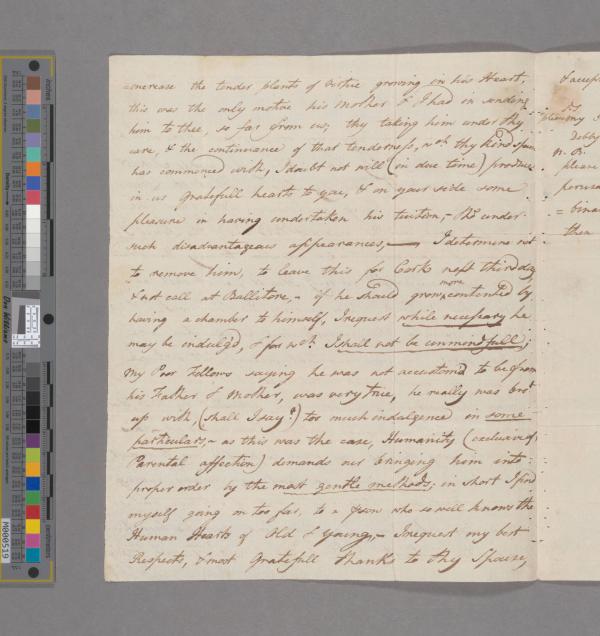 increase the tender plants of Virtue growing in his Heart,
this was the only motive his Mother & I had in sending
him to thee, so far from us; thy taking him under thy
care, & the continuance of that tenderness, wch. thy kind Spouse
has commenced with, I doubt not will (in due time) produce
in us gratefull hearts to you, & on your side some
pleasure in having undertaken his tuition,- tho' under
such disadvantageous appearances,— I determine not
to remove him, to leave this for Cork next third day
& not call at Ballitore,- if he should grow more contented by
having a chamber to himself, I request while necessary he
may be indulg'd, & for wch. I shall not be unmindfull;
My Poor Fellows saying he was not accustomed to be from
his Father & Mother, was very true, he really was bro't
up with, (shall I say?) too much indulgence in some
particulars,- as this was the case, Humanity (exclusive of
Parental affection) demands our bringing him into
proper order by the most gentle methods, in short I find
myself going on too far, to a person who so well knows the
Human Hearts of Old & Young,- I request my best
Respects, & most Gratefull thanks to thy Spouse,
& accept
Debby
please
perusa
= bina
then
M000519